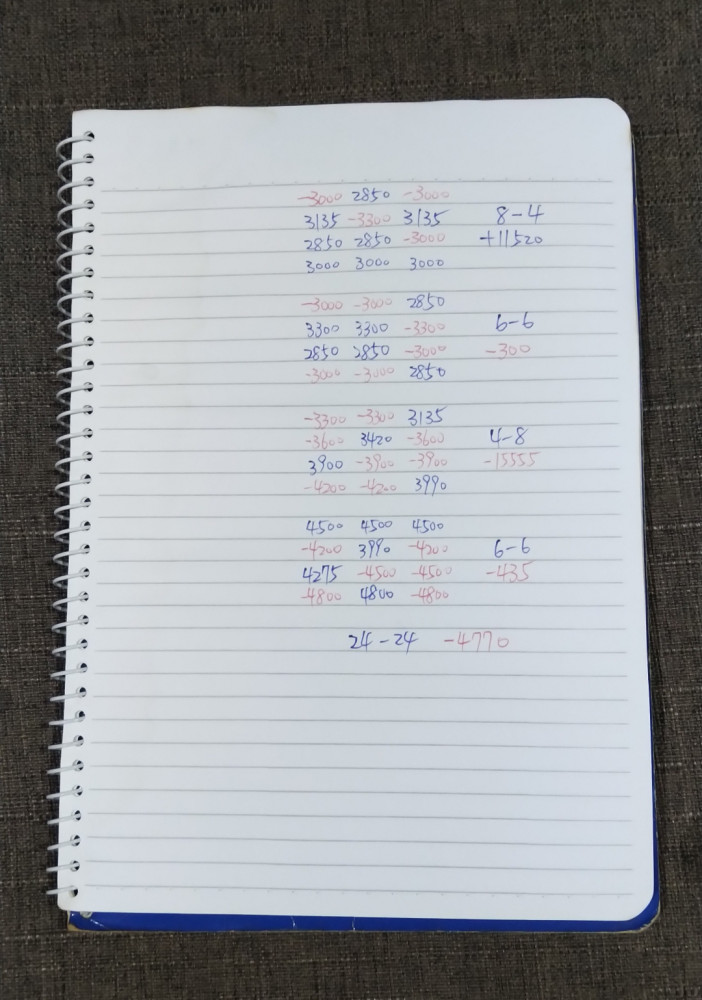 -3000 2850 -3000
3135 -3300 3135 8-4
2850 2850 -3000 +11520
3000 3000 3000
-3000 -3000 2850
3300 3300 -3300 6-6
2850 2850 -3000 -300
-3000 -3000 2850
-3300 -3300 3135
-3600 3420 -3600 4-8
3900 -3900 -3900 -15555
-4200 -4200 3990
4500 4500 4500
-4200 3990 -4200 6-6
4275 -4500 -4500 -435
-4800 4800 -4800
24-24 -4770